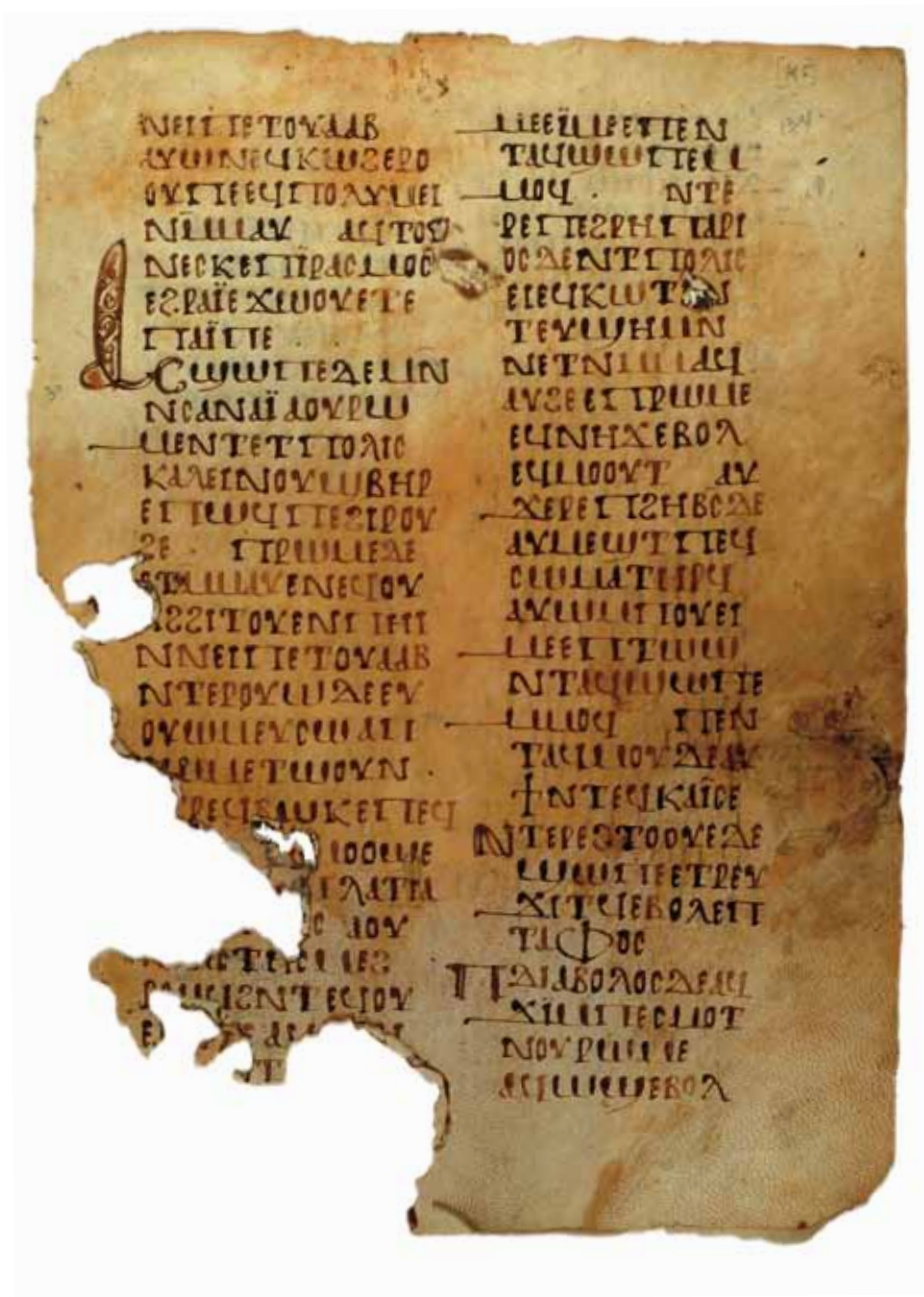 ⲛⲉⲓⲡⲉⲧⲟⲩⲁⲁⲃ
ⲁⲩⲱⲛⲉϥⲕⲱϩⲉⲣⲟ
ⲟⲩⲡⲉⲉϥⲡⲟⲗⲩⲙⲉⲓ
ⲛⲙⲙⲁⲩ ⲁϥⲧⲟⲩ
ⲛⲉⲥⲕⲉⲡⲓⲣⲁⲥⲙⲟⲥ
ⲉϩⲣⲁⲓ̈ⲉϫⲱⲟⲩⲉⲧⲉ
ⲡⲁⲓ̈ⲡⲉ
ⲁⲥϣⲱⲡⲉⲇⲉⲙⲛ
ⲛⲥⲁⲛⲁⲓ̈ⲁⲟⲩⲣⲱ
ⲙⲉⲛⲧⲉⲧⲡⲟⲗⲓⲥ
ⲕⲁⲗⲉⲓⲛⲟⲩϣⲃⲏⲣ
ⲉⲡⲱϥⲡⲉϩⲓⲣⲟⲩ
ϩⲉ ⲡⲣⲱⲙⲉⲇⲉ
ⲉⲧⲙⲙⲁⲩⲉⲛⲉϥⲟⲩ
ⲛⲛⲉⲓⲡⲉⲧⲟⲩⲁⲁⲃ
ⲛⲧⲉⲣⲟⲩⲱⲇⲉⲉⲩ
ⲟⲩⲱⲙⲉⲩⲥⲱⲁⲡ
ⲣⲱⲙⲉⲧⲱⲟⲩⲛ
ⲣⲉϥⲃⲱⲕⲉⲡⲉϥ
ⲙⲟⲟϣⲉ
ⲡⲗⲁⲧⲓⲁ
ⲁⲟⲩ
ⲣⲱϥϩⲛⲧⲉϥⲟⲩ
ⲙⲉⲉⲓ̈ⲙⲉⲉⲡⲉⲛ
ⲧⲁϥϣⲱⲡⲉⲙ
ⲙⲟϥ ⲛⲧⲉ
ⲣⲉⲡⲉϩⲣⲏⲡⲁⲣⲓ
ⲟⲥⲇⲉⲛⲧⲡⲟⲗⲓⲥ
ⲉⲓⲉϥⲕⲱⲧⲉⲛ
ⲧⲉⲩϣⲏⲙⲛ
ⲛⲉⲧⲛⲙⲙⲁϥ
ⲁⲩϩⲉⲉⲡⲣⲱⲙⲉ
ⲉϥⲛⲏϫⲉⲃⲟⲗ
ⲉϥⲙⲟⲟⲩⲧ ⲁⲩ
ϫⲉⲣⲉⲡϩⲏⲃⲥⲇⲉ
ⲁⲩⲙⲉϣⲧⲡⲉϥ
ⲥⲱⲙⲁⲧⲏⲣϥ
ⲁⲩⲱⲙⲡⲟⲩⲉⲓ
ⲙⲉⲉⲡⲧⲱϣ
ⲛⲧⲁϥϣⲱⲡⲉ
ⲙⲙⲟϥ ⲡⲉⲛ
ⲧⲁϥⲙⲟⲩⲇⲉⲁⲩ
ϯⲛⲧⲉϥⲕⲁⲓ̈ⲥⲉ
ⲛⲧⲉⲣⲉϩⲧⲟⲟⲩⲉⲇⲉ
ϣⲱⲡⲉⲉⲧⲣⲉⲩ
ϫⲓⲧϥⲉⲃⲟⲗⲉⲡ
ⲧⲁⲫⲟⲥ
ⲡⲇⲓⲁⲃⲟⲗⲟⲥⲇⲉⲁϥ
ϫⲓⲙⲡⲉⲥⲙⲟⲧ
ⲛⲟⲩⲣⲱⲙⲉ
ⲁϥⲱϣⲉⲃⲟⲗ